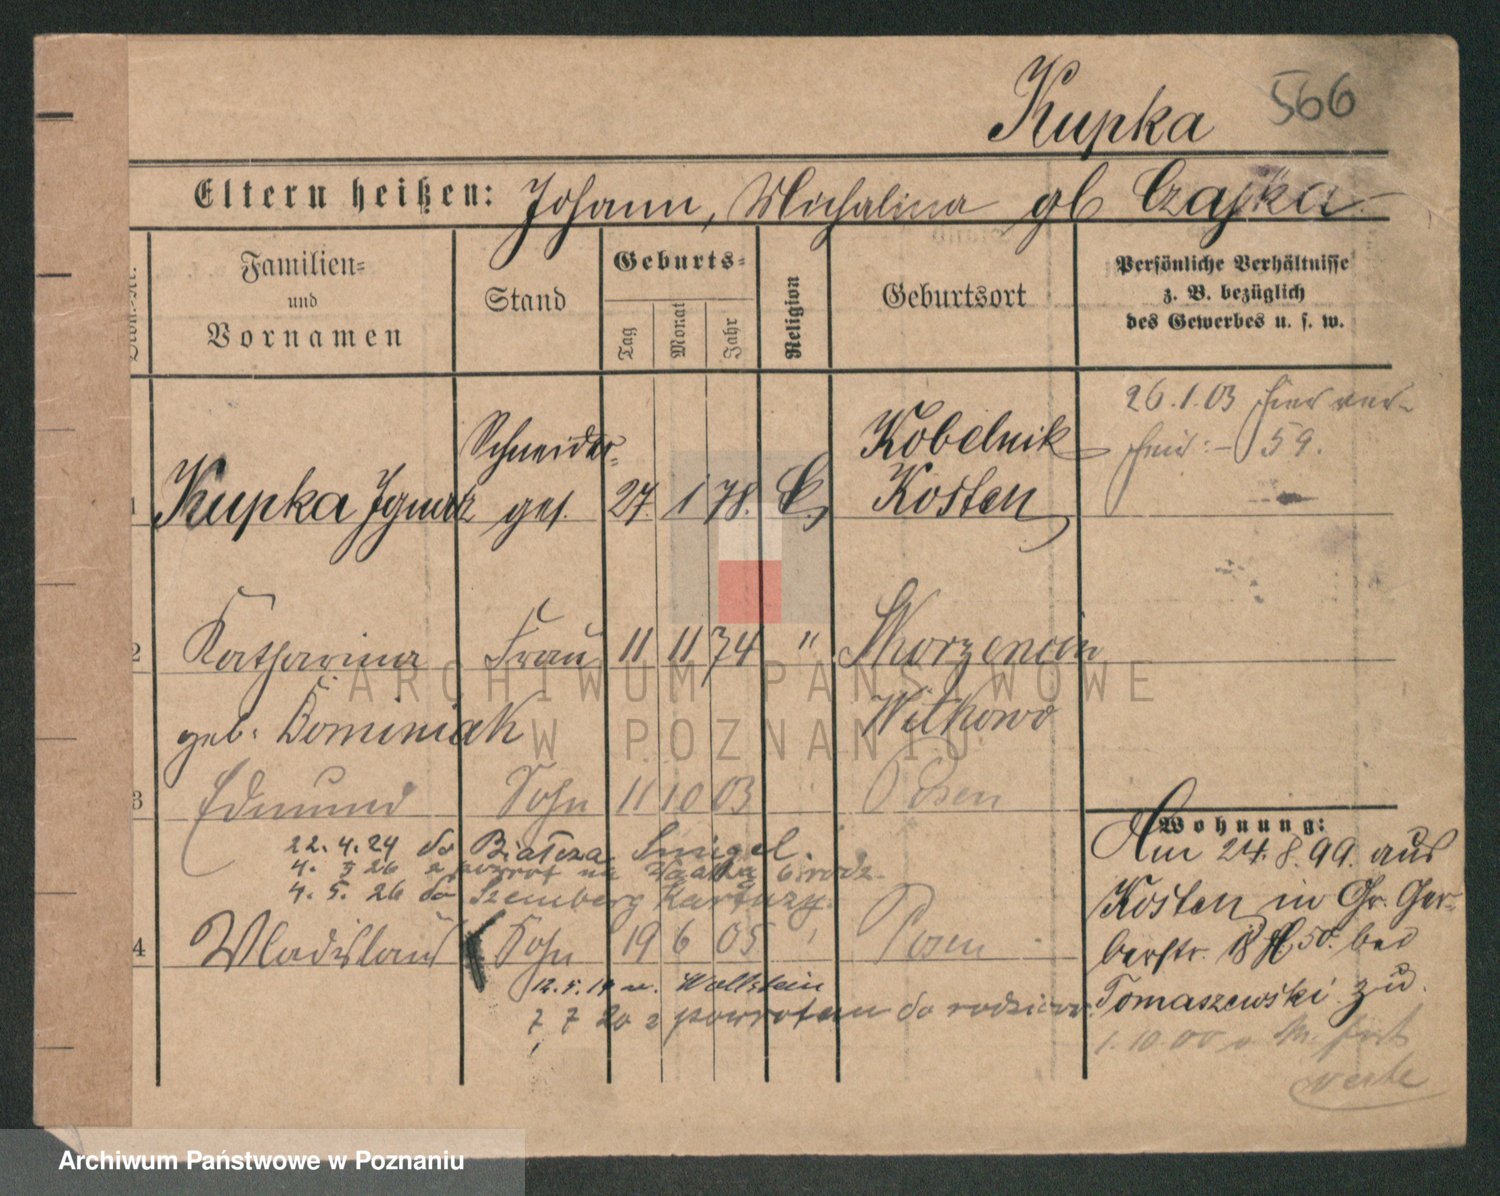 Kupka 566
Eltern heißen: Johann, Michalina gb Czajka
Familien-
und
Vornamen
Stand
Geburts-
Tag
Monat
Jahr
Religion
Geburtsort
Persönliche Verhältnisse
z. B. bezüglich
des Gewerbes u. s. w.
26.1.03 hier
59.
Schneider-
Kobelnik
1 Kupka Ignatz ges. 27 1 78. C. Kosten
2 Katharina Frau 11 11 74 " Skorzencin
geb. Dominiak Witkowo
3 Edmund Sohn 11 10 03 " Posen
22.4.24 do Białcza Smigel.
4. 3 26 z powrot na
4. 5. 26 do Szemberg Kartuzy.
4 Wladislaus Sohn 19 6 05 " Posen
12.5.19 n. Wollstein
7 7 20 z powrotem do rodziców
Wohnung:
Am 24.8.99. aus
Kosten in Gr. Ger-
berstr. 50. bei
Tomaszewski zu.
1.10.00
verte
ARCHIWUM PAŃSTWOWE
W POZNANIU
Archiwum Państwowe w Poznaniu